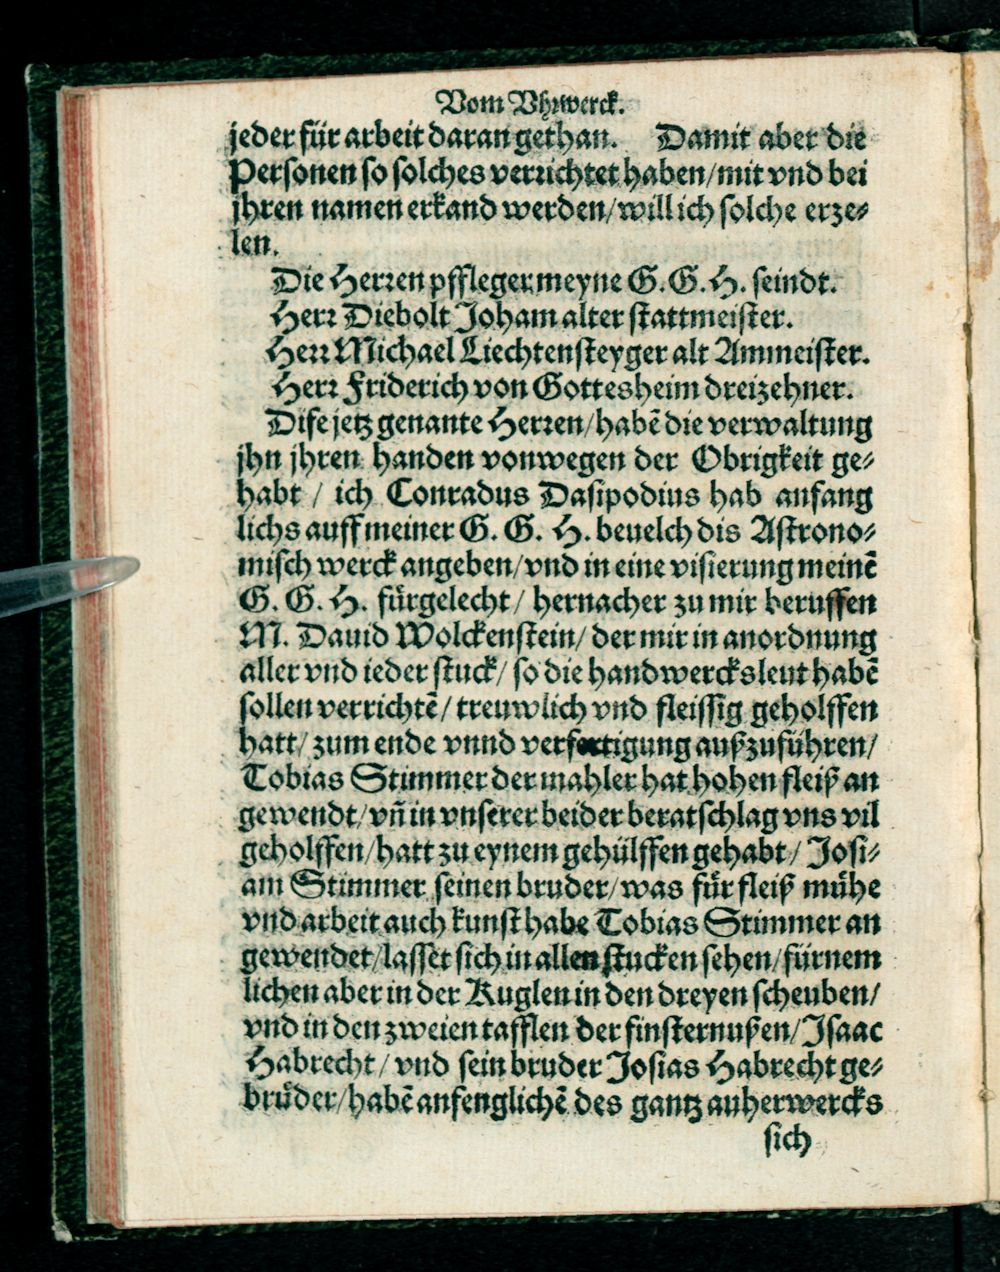 Vom Vhrwerck.
jeder für arbeit daran gethan. Damit aber die
Personen so solches verrichtet haben/mit vnd bei
jhren namen erkand werden/will ich solche erze⸗
len.
Die Herren pffleger meyne G.G.H. seindt.
Herr Diebolt Joham alter stattmeister.
Herr Michael Liechtensteyger alt Ammeister.
Herr Friderich von Gottesheim dreizehner.
Dise jetz genante Herren/habẽ die verwaltung
jhn jhren handen vonwegen der Obrigkeit ge⸗
habt / ich Conradus Dasipodius hab anfang
lichs auff meiner G. G. H. beuelch dis Astrono⸗
misch werck angeben/vnd in eine visierung meinẽ
G. G. H. fürgelecht/ hernacher zu mir beruffen
M. Dauid Wolckenstein/ der mir in anordnung
aller vnd ieder stuck/ so die handwercksleut habẽ
sollen verrichtẽ/ treuwlich vnd fleissig geholffen
hatt/ zum ende vnnd verfertigung außzuführen/
Tobias Stimmer der mahler hat hohen fleiß an
gewendt/vñ in vnserer beider beratschlag vns vil
geholffen/hatt zu eynem gehülffen gehabt/ Josi⸗
am Stimmer seinen bruder/was für fleiß mühe
vnd arbeit auch kunst habe Tobias Stimmer an
gewendet/lasset sich in allen stucken sehen/fürnem
lichen aber in der Kuglen in den dreyen scheuben/
vnd in den zweien tafflen der finsternußen/Isaac
Habrecht/ vnd sein bruder Josias Habrecht ge⸗
brüder/habẽ anfenglichẽ des gantz auherwercks
sich